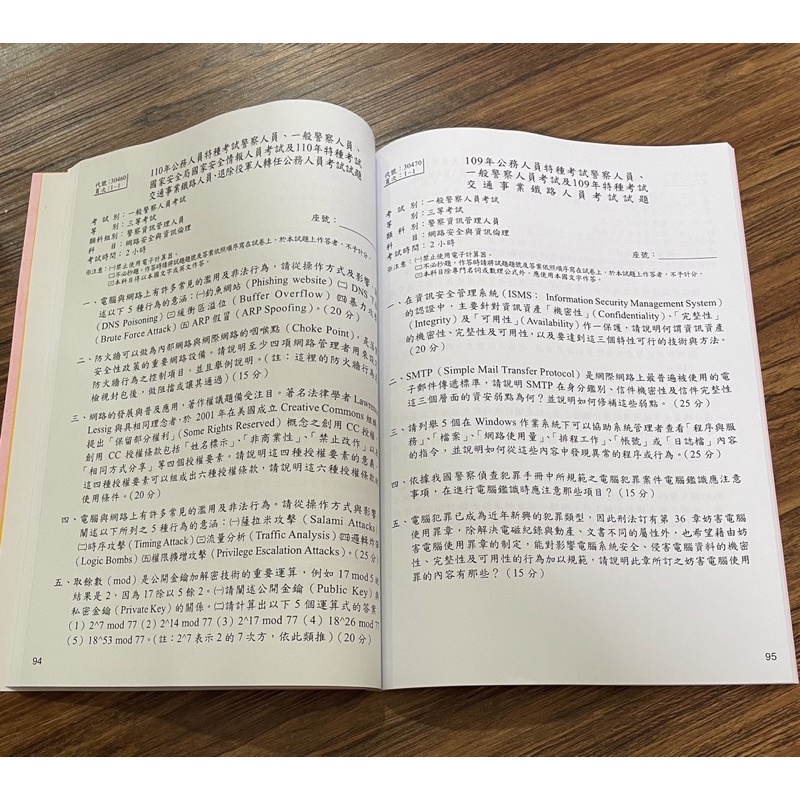 代號：30460
頁次：1-1
110年公務人員特種考試警察人員、一般警察人員、
國家安全局國家安全情報人員考試及110年特種考試
交通事業鐵路人員、退除役軍人轉任公務人員考試試題
考試別：一般警察人員考試
等別：三等考試
類科組別：警察資訊管理人員
科目：網路安全與資訊倫理
考試時間：2小時
座號：
※注意：㈠禁止使用電子計算器。
㈡不必抄題，作答時請將試題題號及答案依照順序寫在試卷上，於本試題上作答者，不予計分。
㈢本科目得以本國文字或英文作答。
一、電腦與網路上有許多常見的濫用及非法行為，請從操作方式及影響
述以下5種行為的意涵：㈠釣魚網站（Phishing website）㈡DNS
（DNS Poisoning）㈢緩衝區溢位（Buffer Overflow）㈣暴力
（Brute Force Attack）㈤ARP假冒（ARP Spoofing）。（20分）
二、防火牆可以做為內部網路與網際網路的咽喉點（Choke Point），是
安全性政策的重要網路設備。請說明至少四項網路管理者用來
防火牆行為之控制項目，並且舉例說明。（註：這裡的防火牆行為
檢視封包後，做阻擋或讓其通過）（15分）
三、網路的發展與普及應用，著作權議題備受注目。著名法律學者Lawrence
Lessig與具相同理念者，於2001年在美國成立Creative Commons組織
提出「保留部分權利」（Some Rights Reserved）概念之創用CC授權
創用CC授權條款包括「姓名標示」、「非商業性」、「禁止改作」以
「相同方式分享」等四個授權要素。請說明這四種授權要素的意義
這四種授權要素可以組成出六種授權條款，請說明這六種授權條款
使用條件。（20分）
四、電腦與網路上有許多常見的濫用及非法行為。請從操作方式與影響
闡述以下所列之5種行為的意涵：㈠薩拉米攻擊（Salami Attacks）
㈡時序攻擊（Timing Attack）㈢流量分析（Traffic Analysis）㈣邏輯炸
（Logic Bombs）㈤權限擴增攻擊（Privilege Escalation Attacks）。（25分
五、取餘數（mod）是公開金鑰加解密技術的重要運算，例如17 mod 5的
結果是2，因為17除以5餘2。㈠請闡述公開金鑰（Public Key）與
私密金鑰（Private Key）的關係。㈡請計算出以下5個運算式的答案
（1）2^7 mod 77（2）2^14 mod 77（3）2^17 mod 77（4）18^26 mod 77
（5）18^53 mod 77。（註：2^7表示2的7次方，依此類推）（20分）
94
代號：30470
頁次：1-1
109年公務人員特種考試警察人員、
一般警察人員考試及109年特種考試
交通事業鐵路人員考試試題
考試別：一般警察人員考試
等別：三等考試
類科別：警察資訊管理人員
科目：網路安全與資訊倫理
考試時間：2小時
座號：
※注意：㈠禁止使用電子計算器。
㈡不必抄題，作答時請將試題題號及答案依照順序寫在試卷上，於本試題上作答者，不予計分。
㈢本科目除專門名詞或數理公式外，應使用本國文字作答。
一、在資訊安全管理系統（ISMS：Information Security Management System）
的認證中，主要針對資訊資產「機密性」（Confidentiality）、「完整性」
（Integrity）及「可用性」（Availability）作一保護，請說明何謂資訊資產
的機密性、完整性及可用性，以及要達到這三個特性可行的技術與方法。
（20分）
二、SMTP（Simple Mail Transfer Protocol）是網際網路上最普遍被使用的電
子郵件傳遞標準，請說明SMTP在身分鑑別、信件機密性及信件完整性
這三個層面的資安弱點為何？並說明如何修補這些弱點。（25分）
三、請列舉5個在Windows作業系統下可以協助系統管理者查看「程序與服
務」、「檔案」、「網路使用量」、「排程工作」、「帳號」或「日誌檔」內容
的指令，並說明如何從這些內容中發現異常的程序或行為。（25分）
四、依據我國警察偵查犯罪手冊中所規範之電腦犯罪案件電腦鑑識應注意
事項，在進行電腦鑑識時應注意那些項目？（15分）
五、電腦犯罪已成為近年新興的犯罪類型，因此刑法訂有第36章妨害電腦
使用罪章，除解決電磁紀錄與動產、文書不同的屬性外，也希望藉由妨
害電腦使用罪章的制定，能對影響電腦系統安全、侵害電腦資料的機密
性、完整性及可用性的行為加以規範，請說明此章所訂之妨害電腦使用
罪的內容有那些？（15分）
95